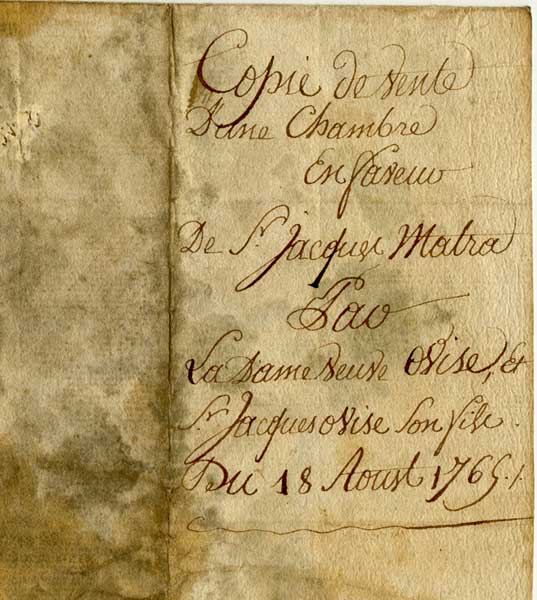 Copie de vente
D'une Chambre
En faveur
De Sr. Jacques Matra
Par
La Dame veuve Ovise, et
Sr. Jacques Ovise son fils.
Du 18 Aoust 1765./.